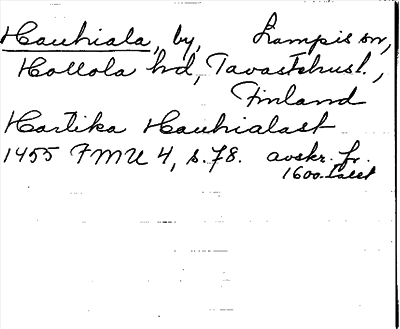 Hauhiala, by, Lampis sn,
Hollola hd, Tavastehusl.,
Finland
Hartika Hauhialast
1455 FMU 4, s. 78. avskr. fr.
1600-talet